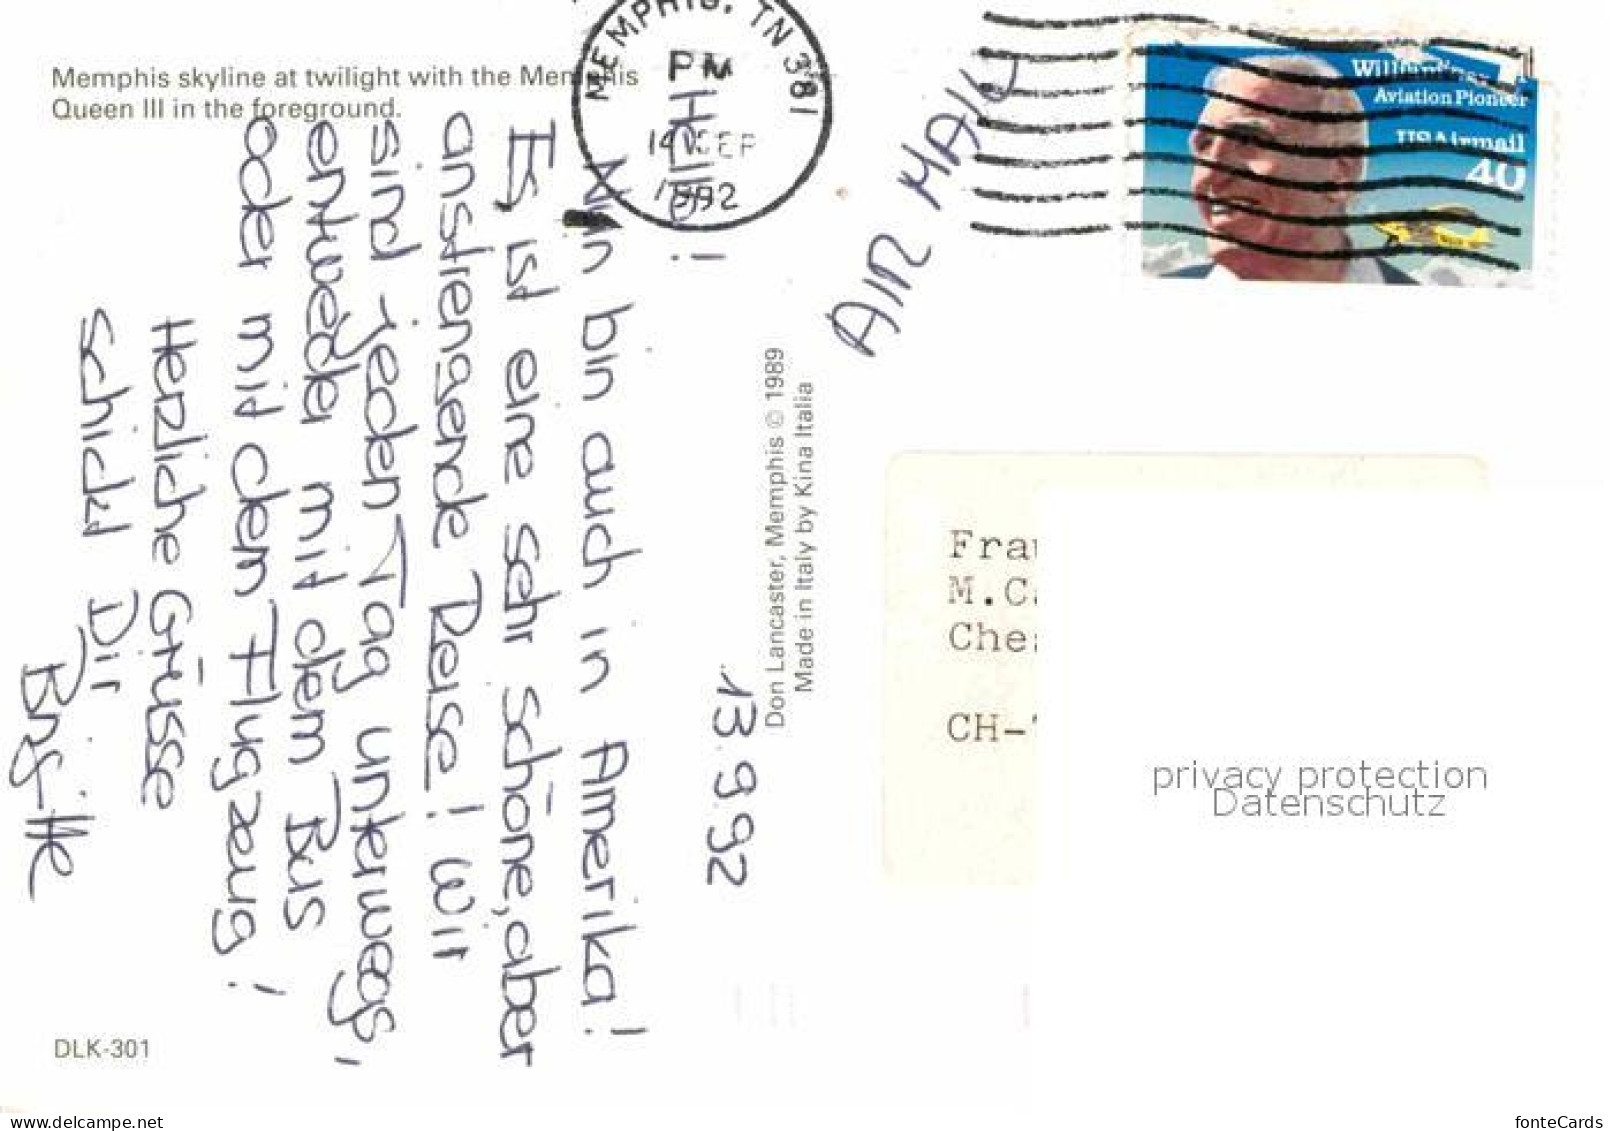 Memphis skyline at twilight with the Memphis
Queen III in the foreground.
MEMPHIS, TN 381
PM
14 SEP
1992
AIR MAIL
Aviation Pioneer
US Airmail
40
13.9.92
Hello!
Nun bin auch in Amerika!
Es ist eine sehr schöne, aber
anstrengende Reise! Wir
sind jeden Tag unterwegs,
entweder mit dem Bus
oder mit dem Flugzeug!
Herzliche Grüsse
schickt Dir
Brigitte
Don Lancaster, Memphis © 1989
Made in Italy by Kina Italia
M.C
Che
CH-
privacy protection
Datenschutz
DLK-301
www.delcampe.net
fonteCards